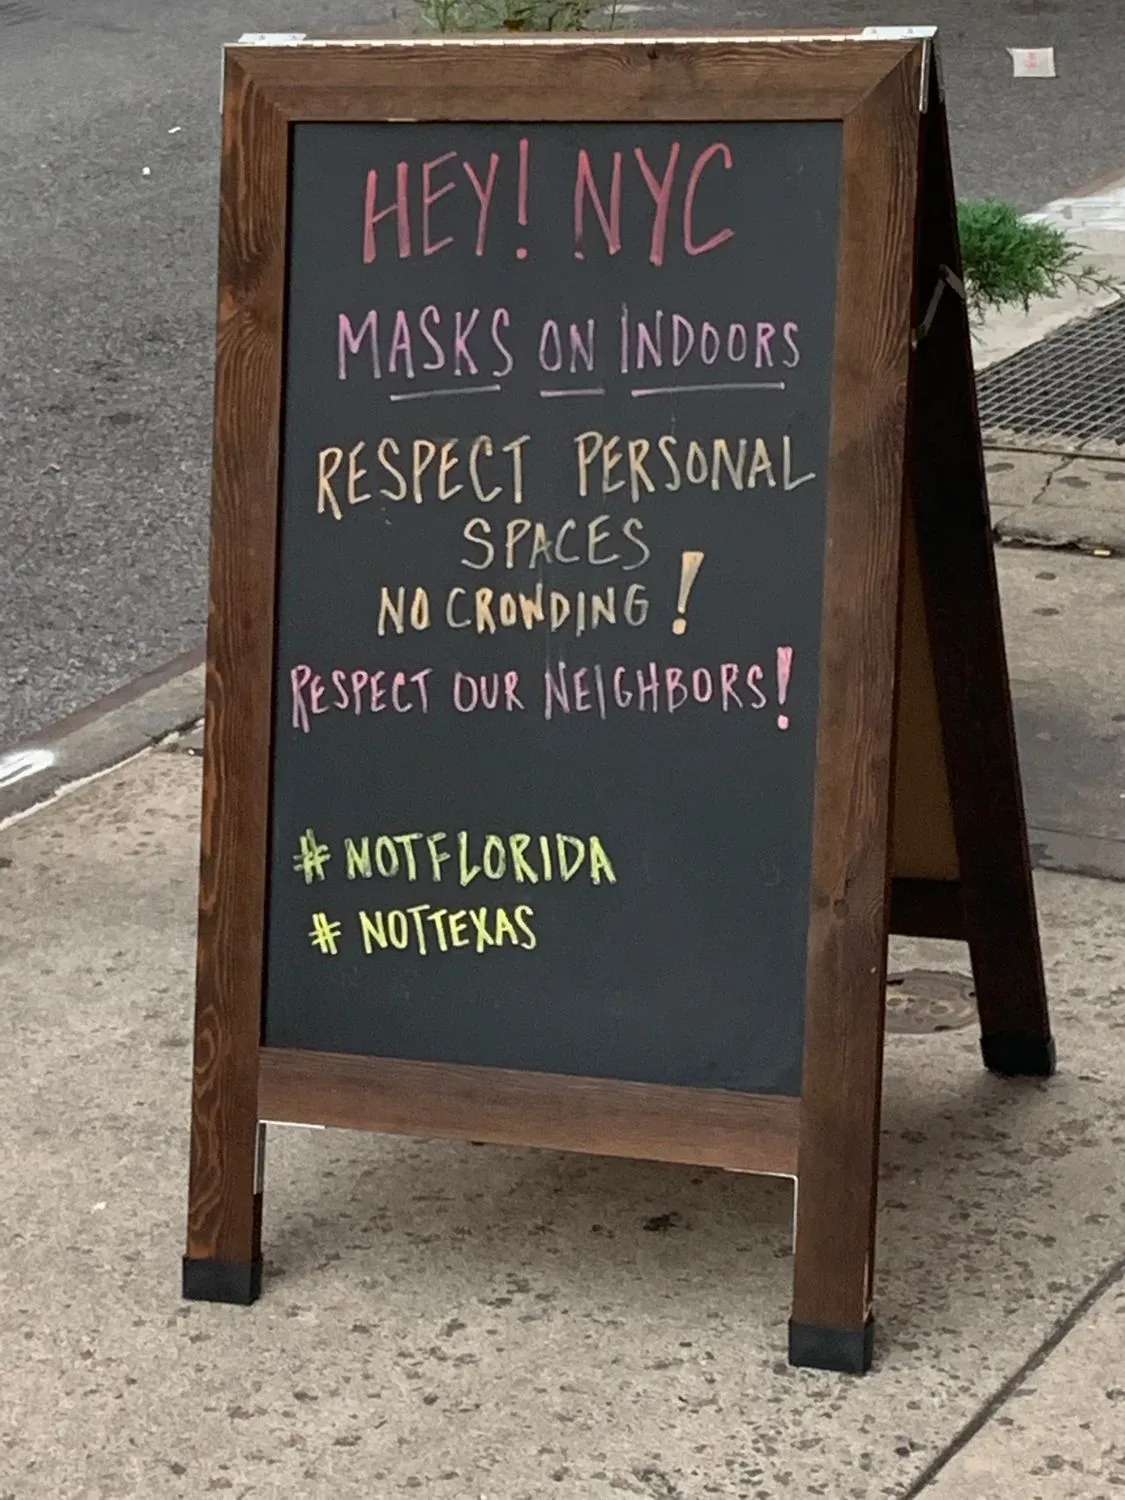 HEY! NYC
MASKS ON INDOORS
RESPECT PERSONAL
SPACES
NO CROWDING!
RESPECT OUR NEIGHBORS!
# NOTFLORIDA
# NOTTEXAS